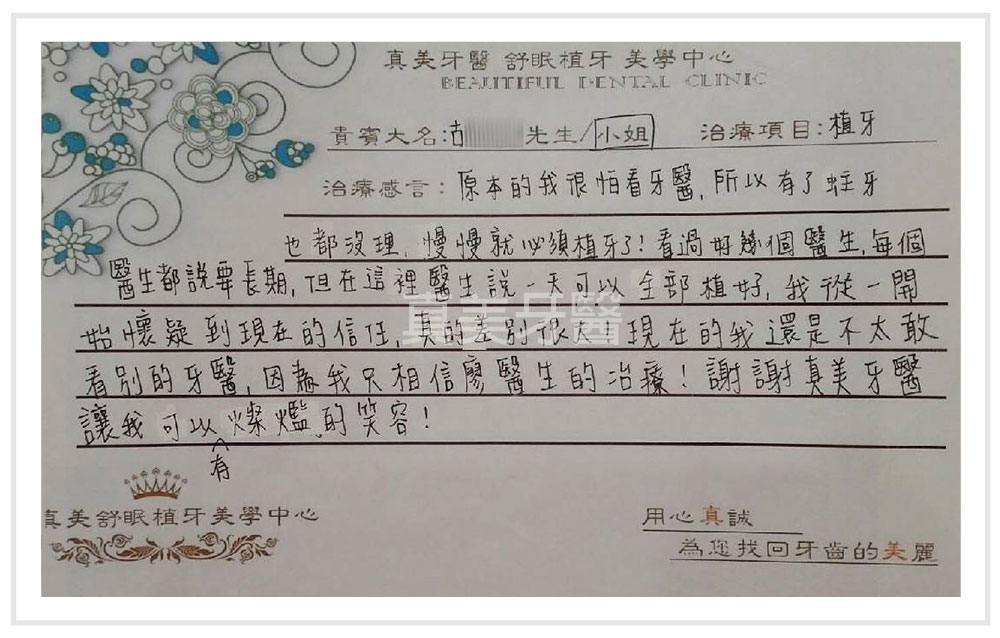 真美牙醫 舒眠植牙 美學中心
BEAUTIFUL DENTAL CLINIC
貴賓大名: 先生/小姐 治療項目:植牙
治療感言：原本的我很怕看牙醫，所以有了蛀牙
也都沒理，慢慢就必須植牙了！看過好幾個醫生，每個
醫生都說要長期，但在這裡醫生說一天可以全部植好，我從一開
始懷疑到現在的信任，真的差別很大！現在的我還是不太敢
看別的牙醫，因為我只相信廖醫生的治療！謝謝真美牙醫
讓我可以有燦爛的笑容！
真美牙醫
真美舒眠植牙美學中心
用心真誠
為您找回牙齒的美麗